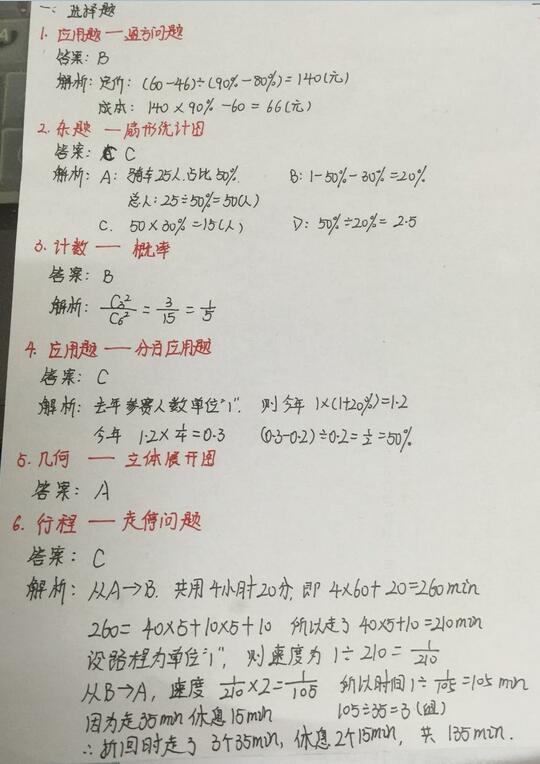 一、选择题
1. 应用题——盈亏问题
答案: B
解析: 定价: (60-46)÷(90%-80%)=140(元)
成本: 140×90%-60=66(元)
2. 杂题——扇形统计图
答案: C
解析: A: 骑车25人.占比50%. B: 1-50%-30%=20%.
总人: 25÷50%=50(人)
C. 50×30%=15(人) D: 50%÷20%=2.5
3. 计数——概率
答案: B
解析: C₃²/C₆² = 3/15 = 1/5
4. 应用题——分百应用题
答案: C
解析: 去年参赛人数单位"1". 则今年 1×(1+20%)=1.2
今年 1.2×1/4=0.3 (0.3-0.2)÷0.2=1/2=50%
5. 几何——立体展开图
答案: A
6. 行程——走停问题
答案: C
解析: 从A→B. 共用4小时20分, 即 4×60+20=260min
260=40×5+10×5+10 所以走了 40×5+10=210min
设路程为单位"1", 则速度为 1÷210=1/210
从B→A, 速度 1/210×2=1/105 所以时间 1÷1/105=105min
因为走35min休息15min 105÷35=3(组)
∴折回时走了3个35min, 休息2个15min, 共135min.